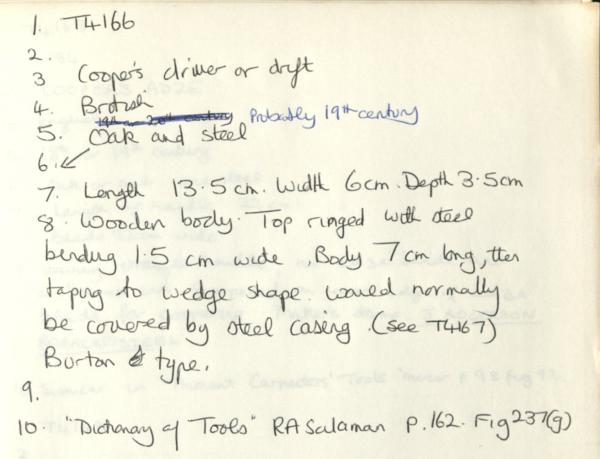 1. T4166
2.
3 Cooper's driver or drift
4. British
19th or 20th century Probably 19th century
5. Oak and steel
6.
7. Length 13.5 cm. Width 6cm. Depth 3.5cm
8. Wooden body. Top ringed with steel
binding 1.5 cm wide Body 7cm long, then
taping to wedge shape. would normally
be covered by steel casing. (see T4167)
Burton type.
9.
10. "Dictionary of Tools" RA Salaman p.162. Fig 237(g)